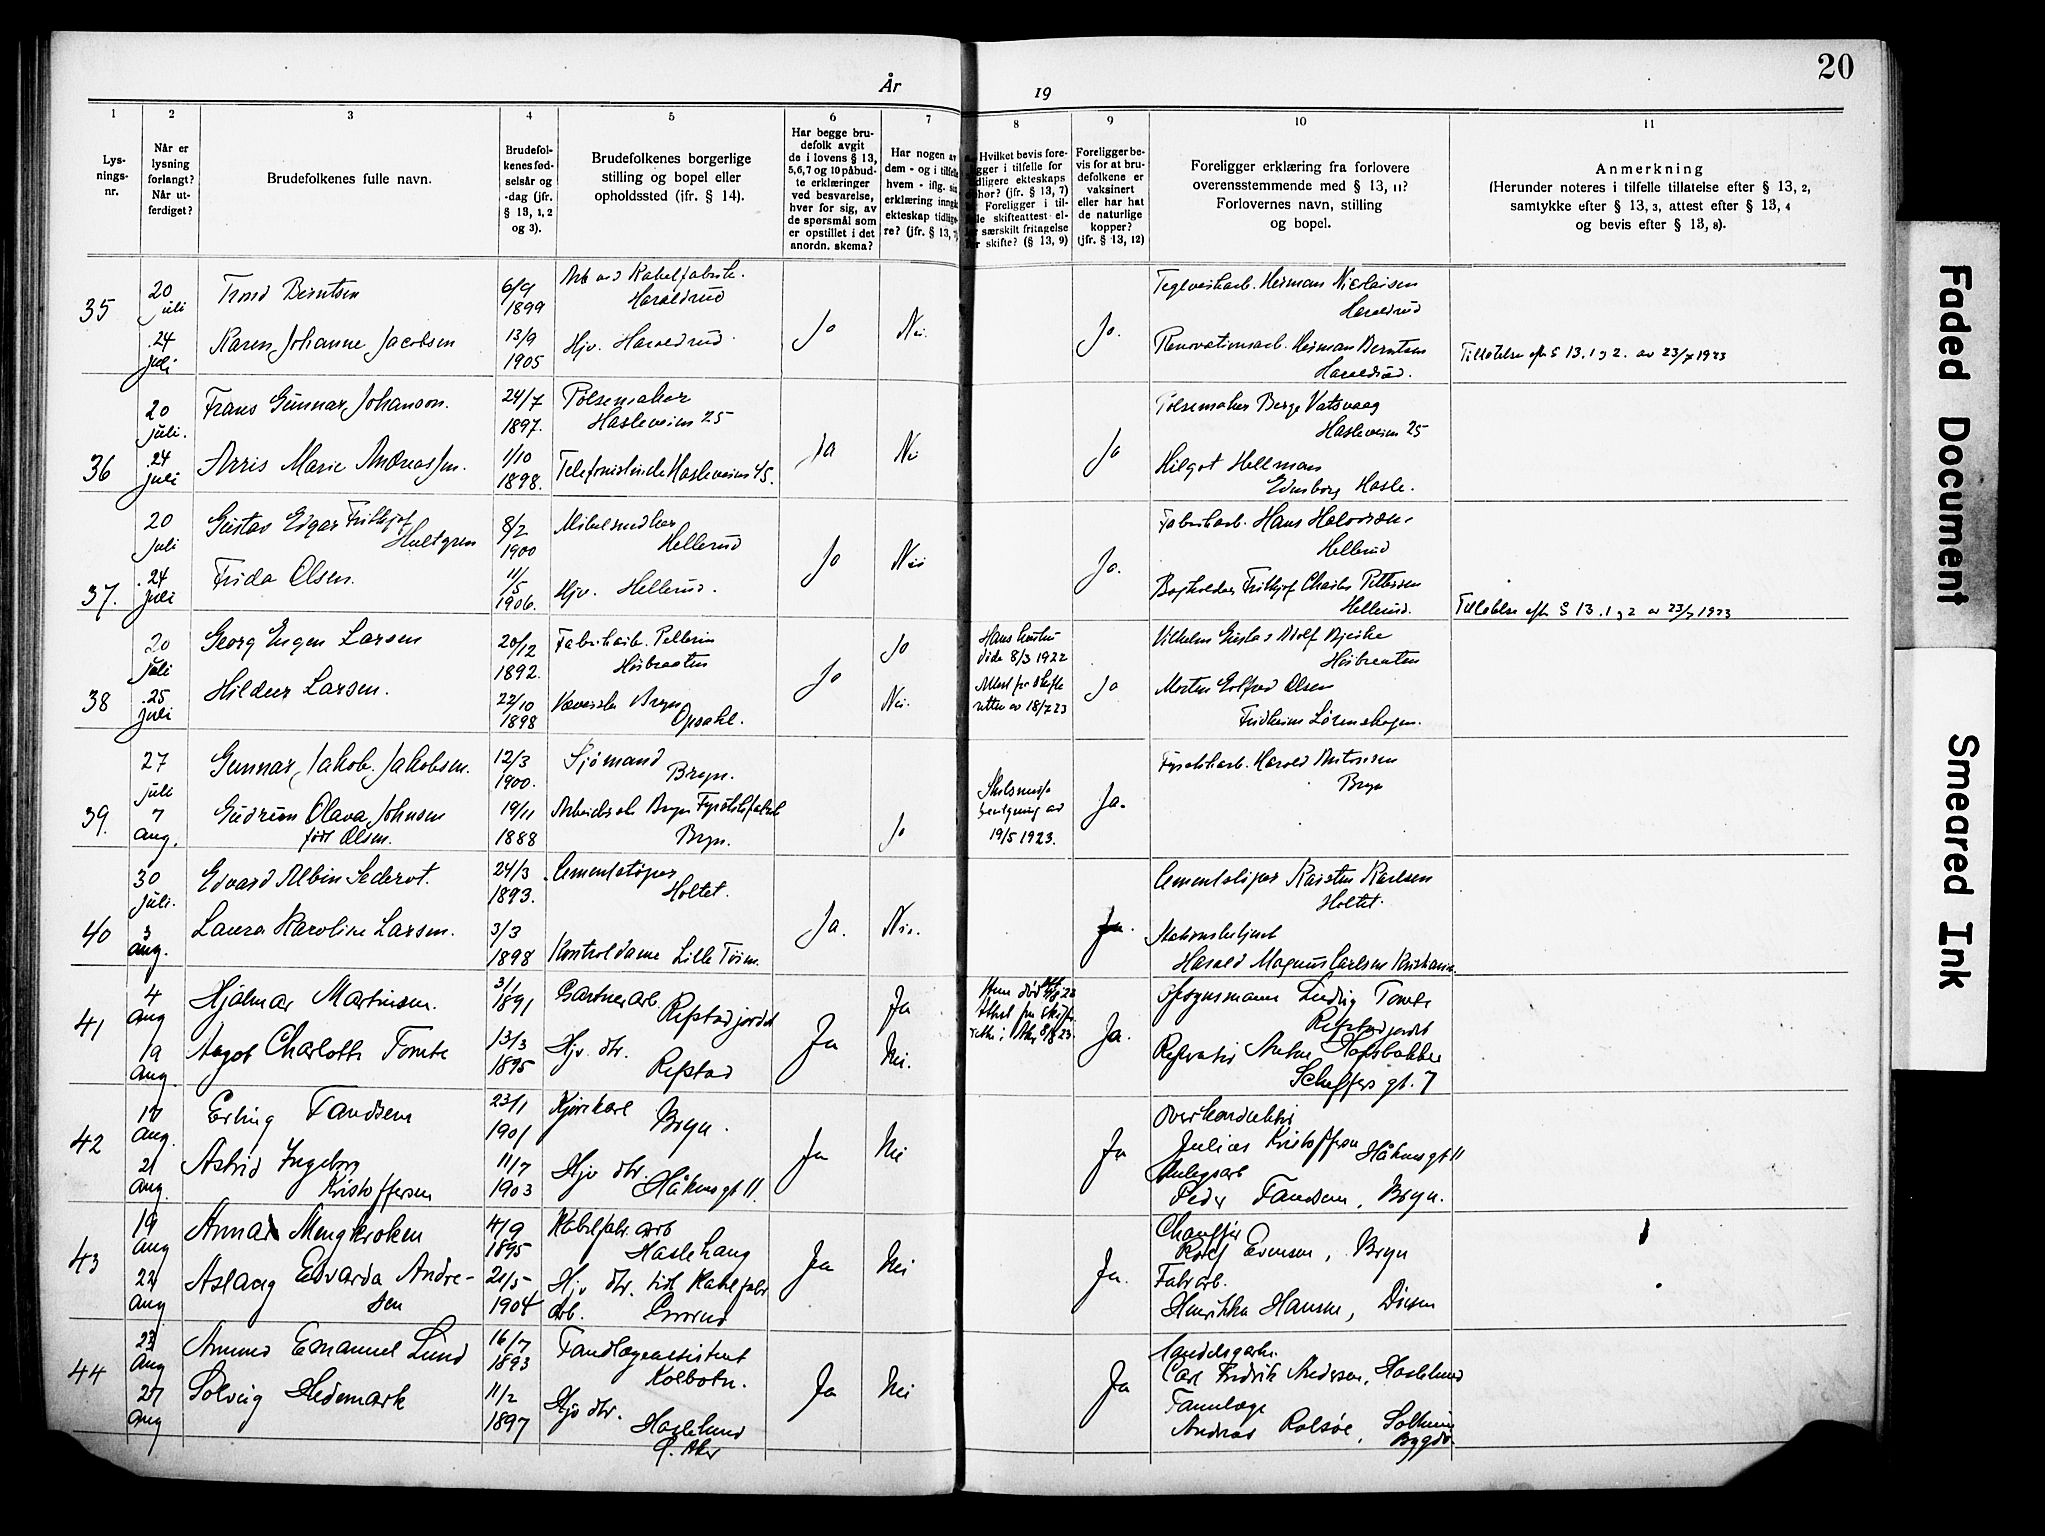 20
År
19
1 2 3 4 5 6 7 8 9 10 11
Lys-
nings-
nr.
Når er
lysning
forlangt?
Når ut-
ferdiget?
Brudefolkenes fulle navn.
Brudefol-
kenes fød-
selsår og
-dag (jfr.
§ 13, 1, 2
og 3).
Brudefolkenes borgerlige
stilling og bopel eller
opholdssted (ifr. § 14).
Har begge bru-
defolk avgit
de i lovens § 13,
5,6,7 og 10 påbud-
te erklæringer
ved besvarelse,
hver for sig, av
de spørsmål som
er opstillet i det
anordn. skema?
Har nogen av
dem - og i tilfelle
hvem - iflg. sin
erklæring inngåt
ekteskap tidlige-
re? (jfr. § 13, 7)
Hvilket bevis fore-
ligger i tilfelle for
tidligere ekteskaps
ophør? (jfr. § 13, 7)
Foreligger i til-
felle skifteattest el-
ler særskilt fritagelse
for skifte? (§ 13, 9)
Foreligger be-
vis for at bru-
defolkene er
vaksinert
eller har hat
de naturlige
kopper?
(jfr. § 13, 12)
Foreligger erklæring fra forlovere
overensstemmende med § 13, 11?
Forlovernes navn, stilling
og bopel.
Anmerkning
(Herunder noteres i tilfelle tillatelse efter § 13, 2,
samtykke efter § 13, 3, attest efter § 13, 4
og bevis efter § 13, 8).
35
20
juli
24
juli
Trond Berntsen
Karen Johanne Jacobsen
6/9
1899
13/9
1905
Arb ved Kabelfabrik.
Haraldrud
Hjv. Haraldrud.
Ja
Nei.
Ja.
Teglverkarb. Herman Nicolaisen
Haraldrud
Renovationsarb. Herman Berntsen
Haraldrud.
Tillatelse efter § 13. 1 og 2. av 23/7 1923
36
20
juli.
24
juli
Frans Gunnar Johanson.
Arris Marie Andreassen.
24/7
1897.
1/10
1898.
Pølsemaker
Hasleveien 25
Telefonistinde Hasleveien 45.
Ja
Nei
Ja
Pølsemaker Berge Vatsvaag
Hasleveien 25
Hilgot Hellman
Hasle.
37.
20
juli
24
juli
Gustav Edgar Frithjof
Hultgren
Frida Olsen.
8/2
1900
11/
5
1906.
Hellerud
Hjv. Hellerud.
Ja
Nei
Ja.
Fabrikarb. Hans Halvorsen
Hellerud
Bogholder Frithjof Charles Pettersen
Hellerud.
Tillatelse efter § 13. 1 og 2 av 23/7 1923
38
20
juli
25
juli
Georg Eugen Larsen
Hildeur Larsen.
20/12
1892.
22/10
1898
Fabrikarb. Pellerin
Høibraaten
Væverske Bryn
Opsahl.
Ja
Ja
Nei.
Hans hustru
død 8/3 1922
Attest fra skifte
retten av 18/7 23
Ja
Vilhelm Gustav Adolf Bjerke
Høibraaten
Morten Olsen
Fridheim Lørenskogen.
39.
27
juli
7
aug.
Gunnar Jakob Jakobsen.
Gudrun Olava Johnsen
født Olsen.
12/3
1900.
19/11
1888
Sjømand
Bryn.
Arbeiderske Bryn Fyrstikfabrik
Bryn.
Ja
Skilsmisse
bevilgning av
19/5 1923.
Ja.
Fyrstikarb. Harald Antonsen
Bryn
40
30
juli.
3
aug.
Edvard Albin Sederot.
Laura Karoline Larsen.
24/3
1893.
3/3
1898
Cementstøper
Holtet.
Kontroldame Lille Tøien.
Ja.
Nei.
Ja.
Cementstøper Karsten Karlsen
Holtet.
Stationsbetjent
Harald Magnus Carlsen Kristiania.
41
4
aug
19
aug.
Hjalmar Martinsen.
Aagot Charlotte Tomte
3/1
1891
13/3
1895
Gartnerarb.
Refstadjordet
Hjv. dtr.
Refstad
Ja
Ja
Nei.
Ja.
Opsynsmann Ludvig Tomte
Refstadjordet
Anton Hofsbakken
Scheffers gt. 7
42
17
aug.
21
aug.
Erling Fandsem
Astrid Ingeborg
Kristoffersen
23/1
1901
11/7
1903
Kjørekarl
Bryn.
Hjv dtr.
Håkons gt 11.
Ja
Nei
Ja
Overkonduktør
Julius Kristoffersen Håkons gt 11
Anlegsarb
Peder Fandsem, Bryn.
43
19
aug
22
aug
Annar Mengkroken
Aslaug Edvarda Andre-
sen
4/9
1895
21/5
1904
Kabelfabr. arb
Haslehaug
Hjv dtr. tidl Kabelfabr
arb. Grorud
Ja
Nei
Ja.
Chauffør
Rolf Evensen, Bryn
Fabr arb.
Henrikka Hansen, Disen
44
23
aug
27
aug
Amund Emanuel Lund
Solveig Hedemark
16/7
1893
11/2
1897
Tandlægeassistent
Kolbotn.
Hjv dtr.
Haslelund
Ø. Aker
Ja
Nei
Ja
Carl Fredrik Andersen, Haslelund
Tannlæge
Andreas Rolsøe,
Bygdø
Faded Document
Smeared Ink